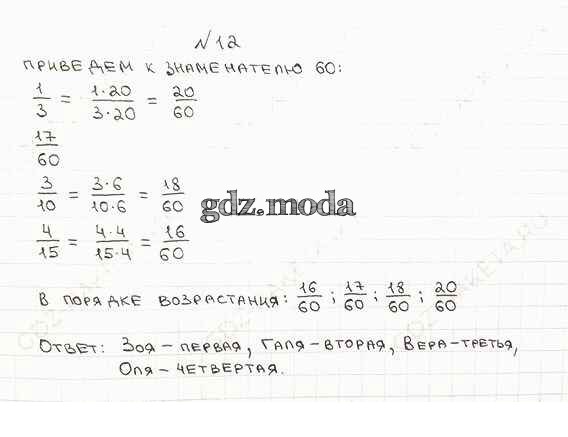 №12
ПРИВЕДЕМ К ЗНАМЕНАТЕЛЮ 60:
1/3 = 1·20/3·20 = 20/60
17/60
3/10 = 3·6/10·6 = 18/60
gdz.moda
4/15 = 4·4/15·4 = 16/60
В ПОРЯДКЕ ВОЗРАСТАНИЯ: 16/60 ; 17/60 ; 18/60 ; 20/60
ОТВЕТ: ЗОЯ – ПЕРВАЯ, ГАЛЯ – ВТОРАЯ, ВЕРА – ТРЕТЬЯ,
ОЛЯ – ЧЕТВЕРТАЯ.